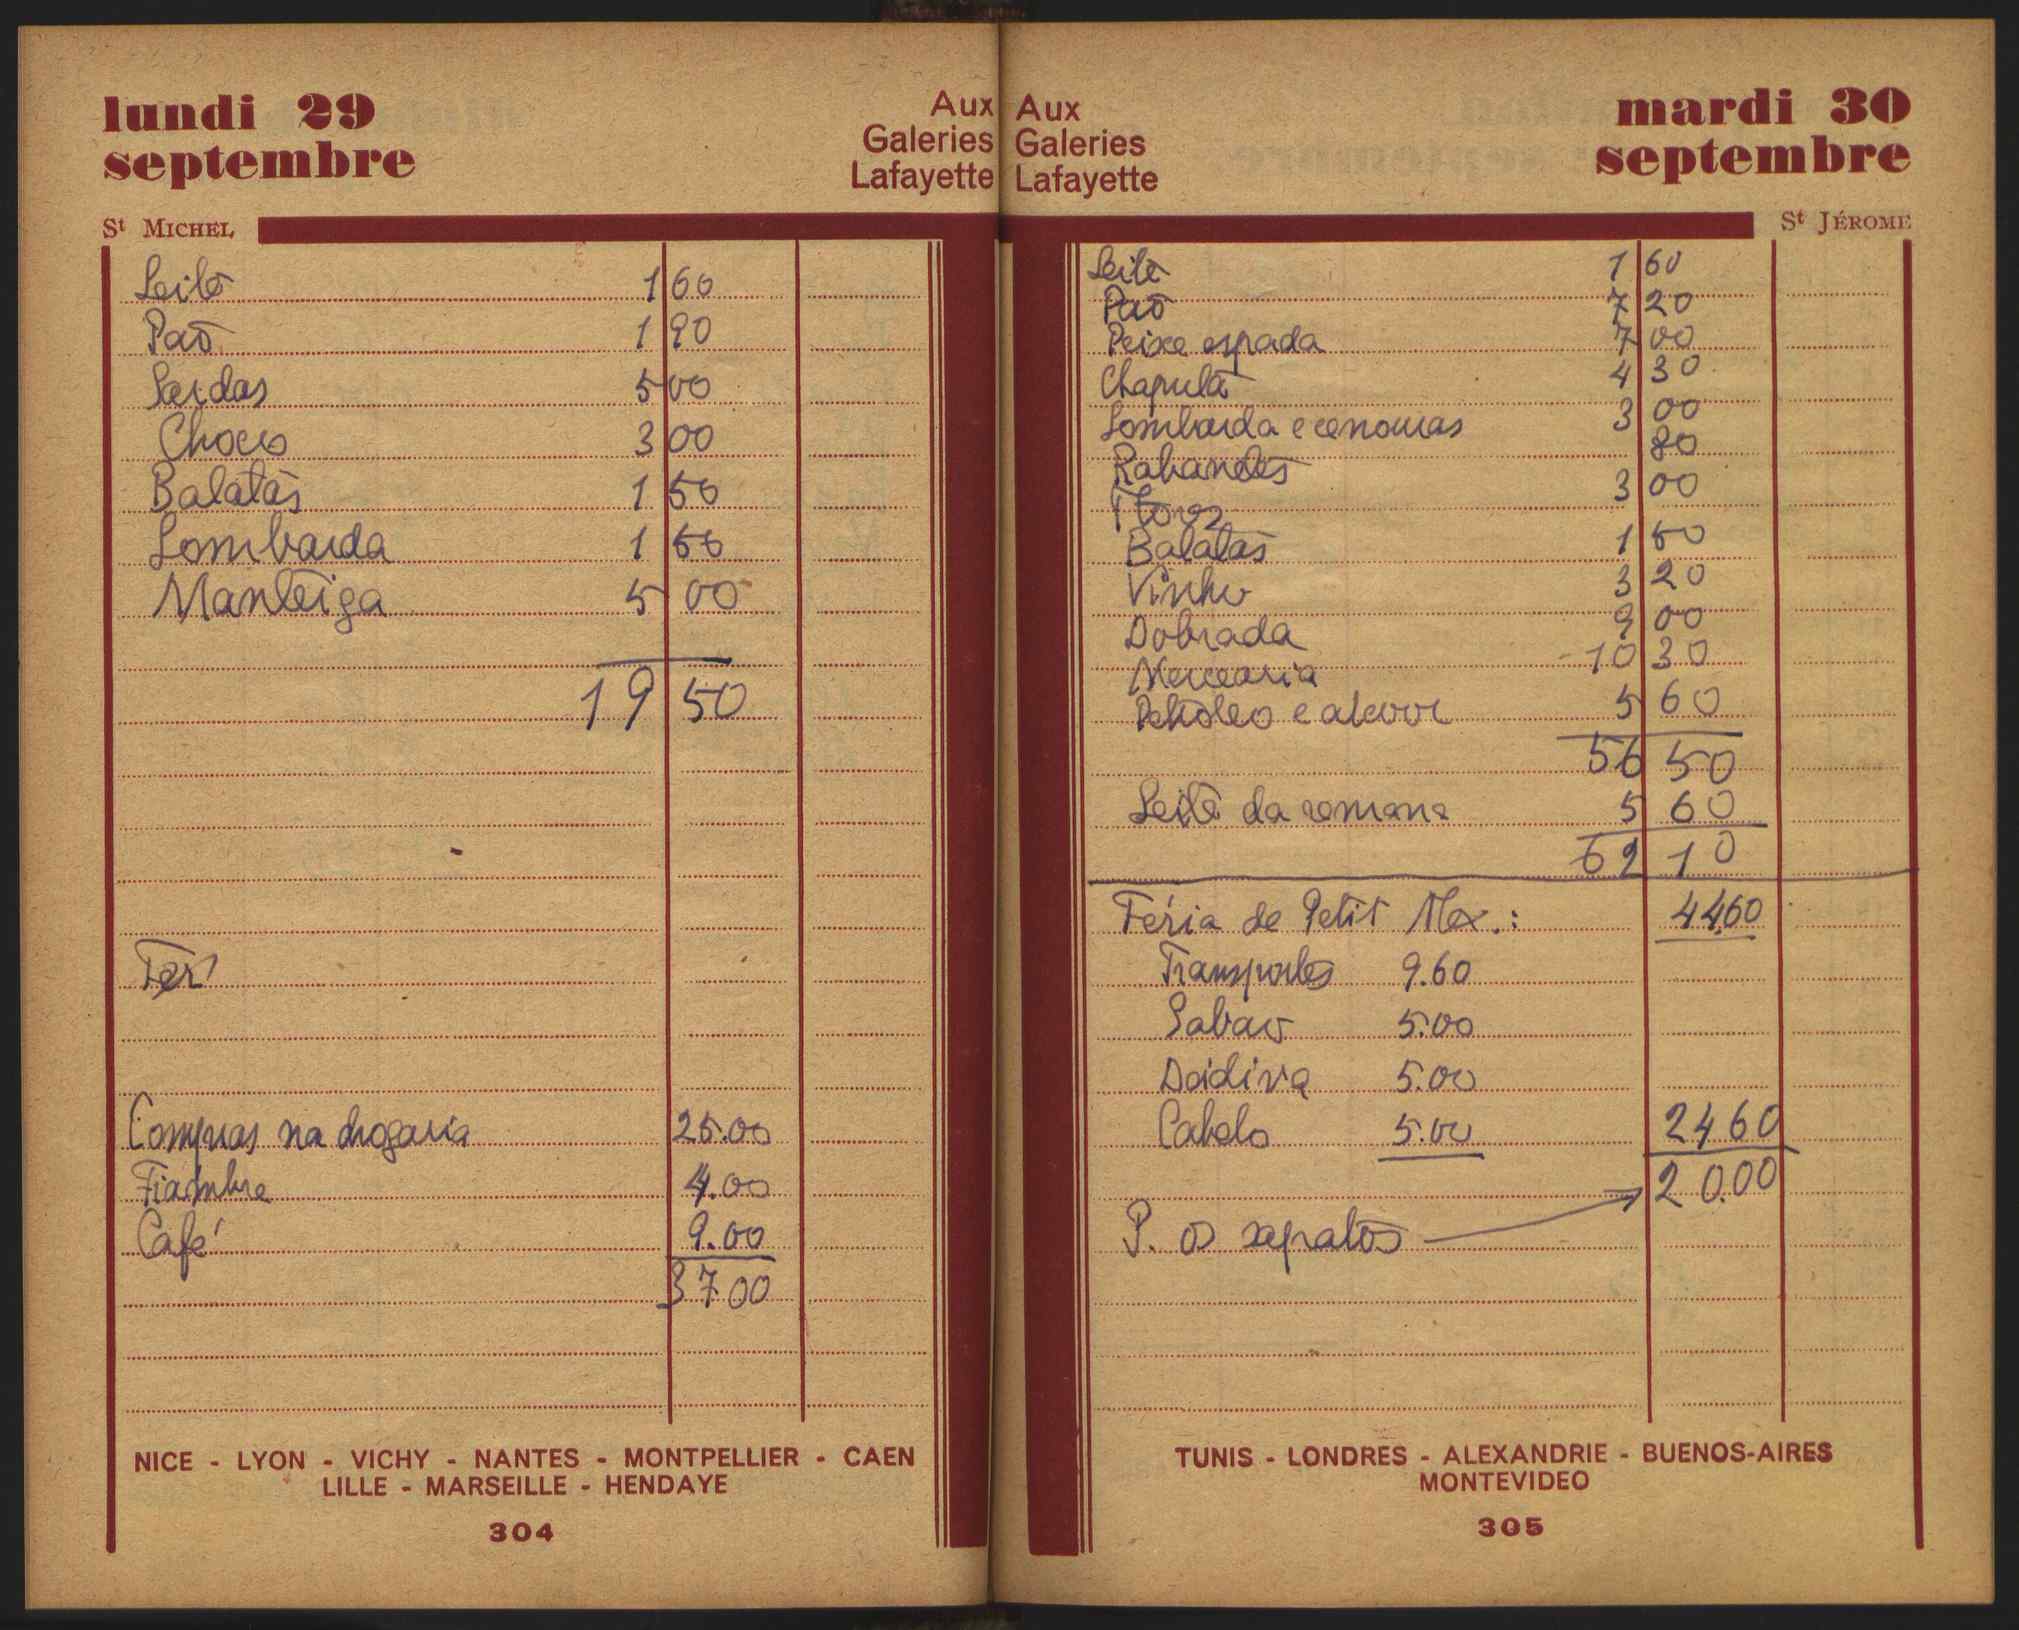 lundi 29
septembre
Aux
Galeries
Lafayette
St MICHEL
Leite 1 60
Pão 1 90
Sardas 5 00
Choco 3 00
Batatas 1 50
Lombarda 1 50
Manteiga 5 00
19 50
Fer
Compras na drogaria 25.00
Fiambre 4.00
Café 9.00
37 00
NICE - LYON - VICHY - NANTES - MONTPELLIER - CAEN
LILLE - MARSEILLE - HENDAYE
304
Aux
Galeries
Lafayette
mardi 30
septembre
St JÉROME
Leite 1 60
Pão 7 20
Peixe espada 7 00
4 30
Lombarda e cenouras 3 00
Rabanetes 80
Flores 3 00
Batatas 1 50
Vinho 3 20
Dobrada 9 00
Mercearia 10 30
Petroleo e alcool 5 60
56 50
Leite da semana 5 60
62 10
Féria de Petit Mex.: 44.60
Transportes 9.60
Sabão 5.00
Dádiva 5.00
Cabelo 5.00 24 60
20.00
P. os sapatos
TUNIS - LONDRES - ALEXANDRIE - BUENOS-AIRES
MONTEVIDEO
305